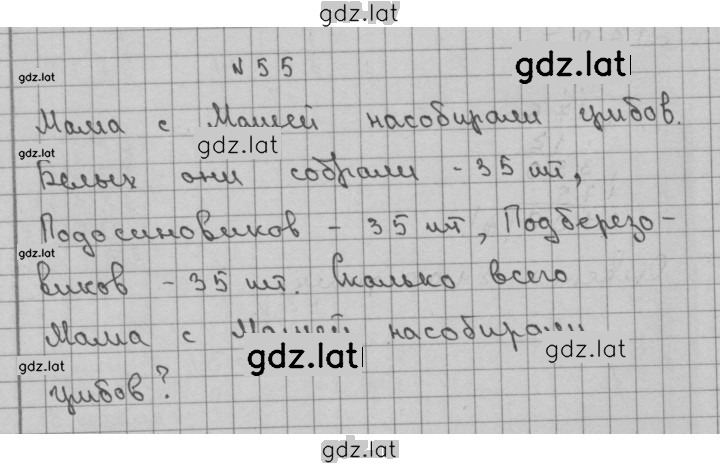 gdz.lat
№ 55
gdz.lat
gdz.lat
Мама с Машей насобирали грибов.
gdz.lat
Белых они собрали - 35 шт,
Подосиновиков - 35 шт, Подберезо-
gdz.lat
виков - 35 шт. Сколько всего
Мама с Машей насобирали
gdz.lat
gdz.lat
gdz.lat
грибов?
gdz.lat